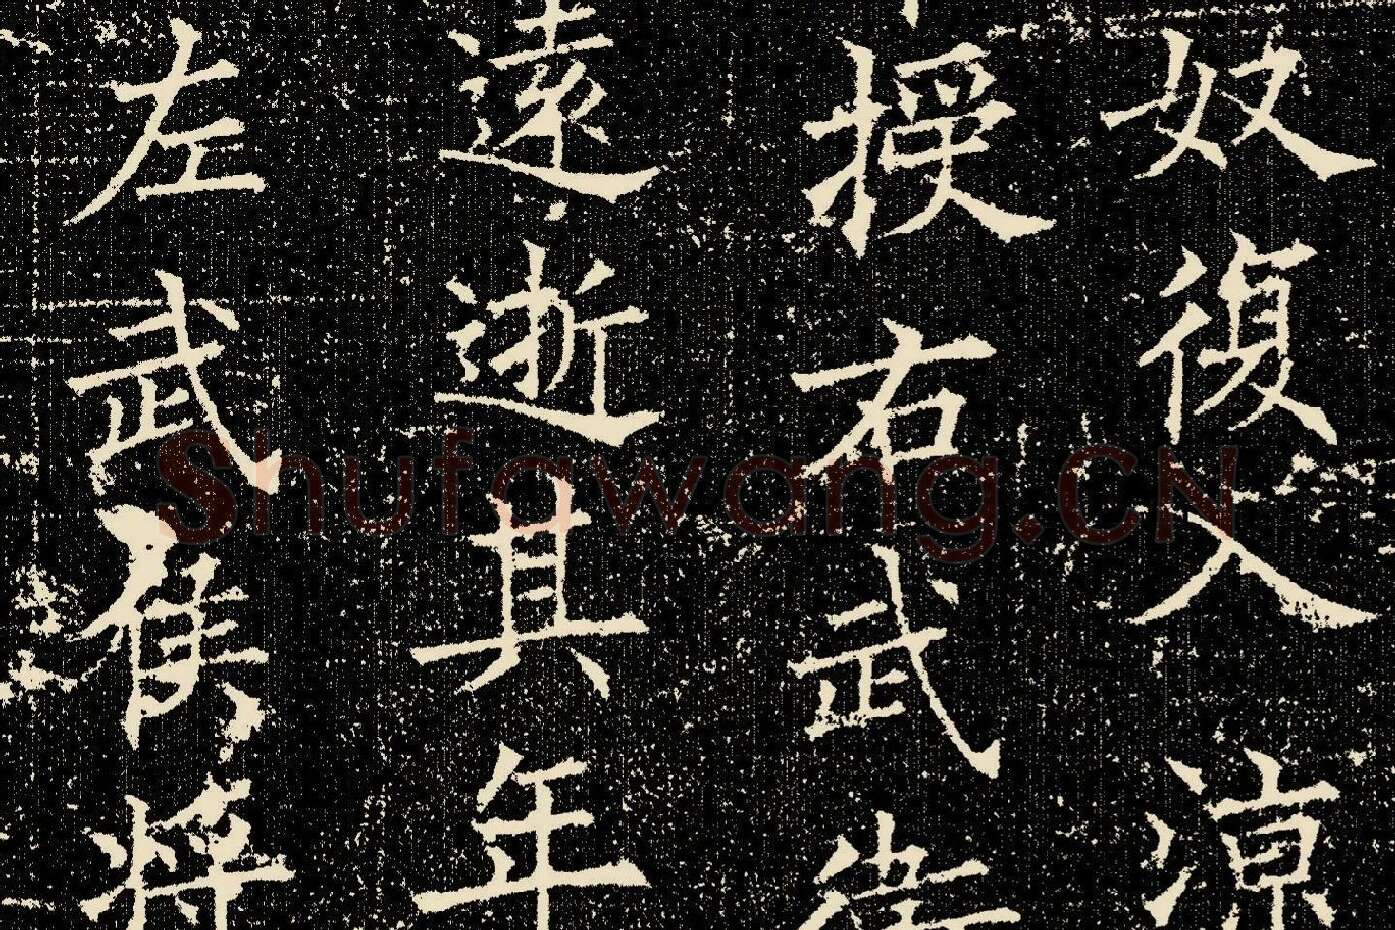 奴復入涼
授右武衛
遠逝其年
左武候將
Shufawang.CN